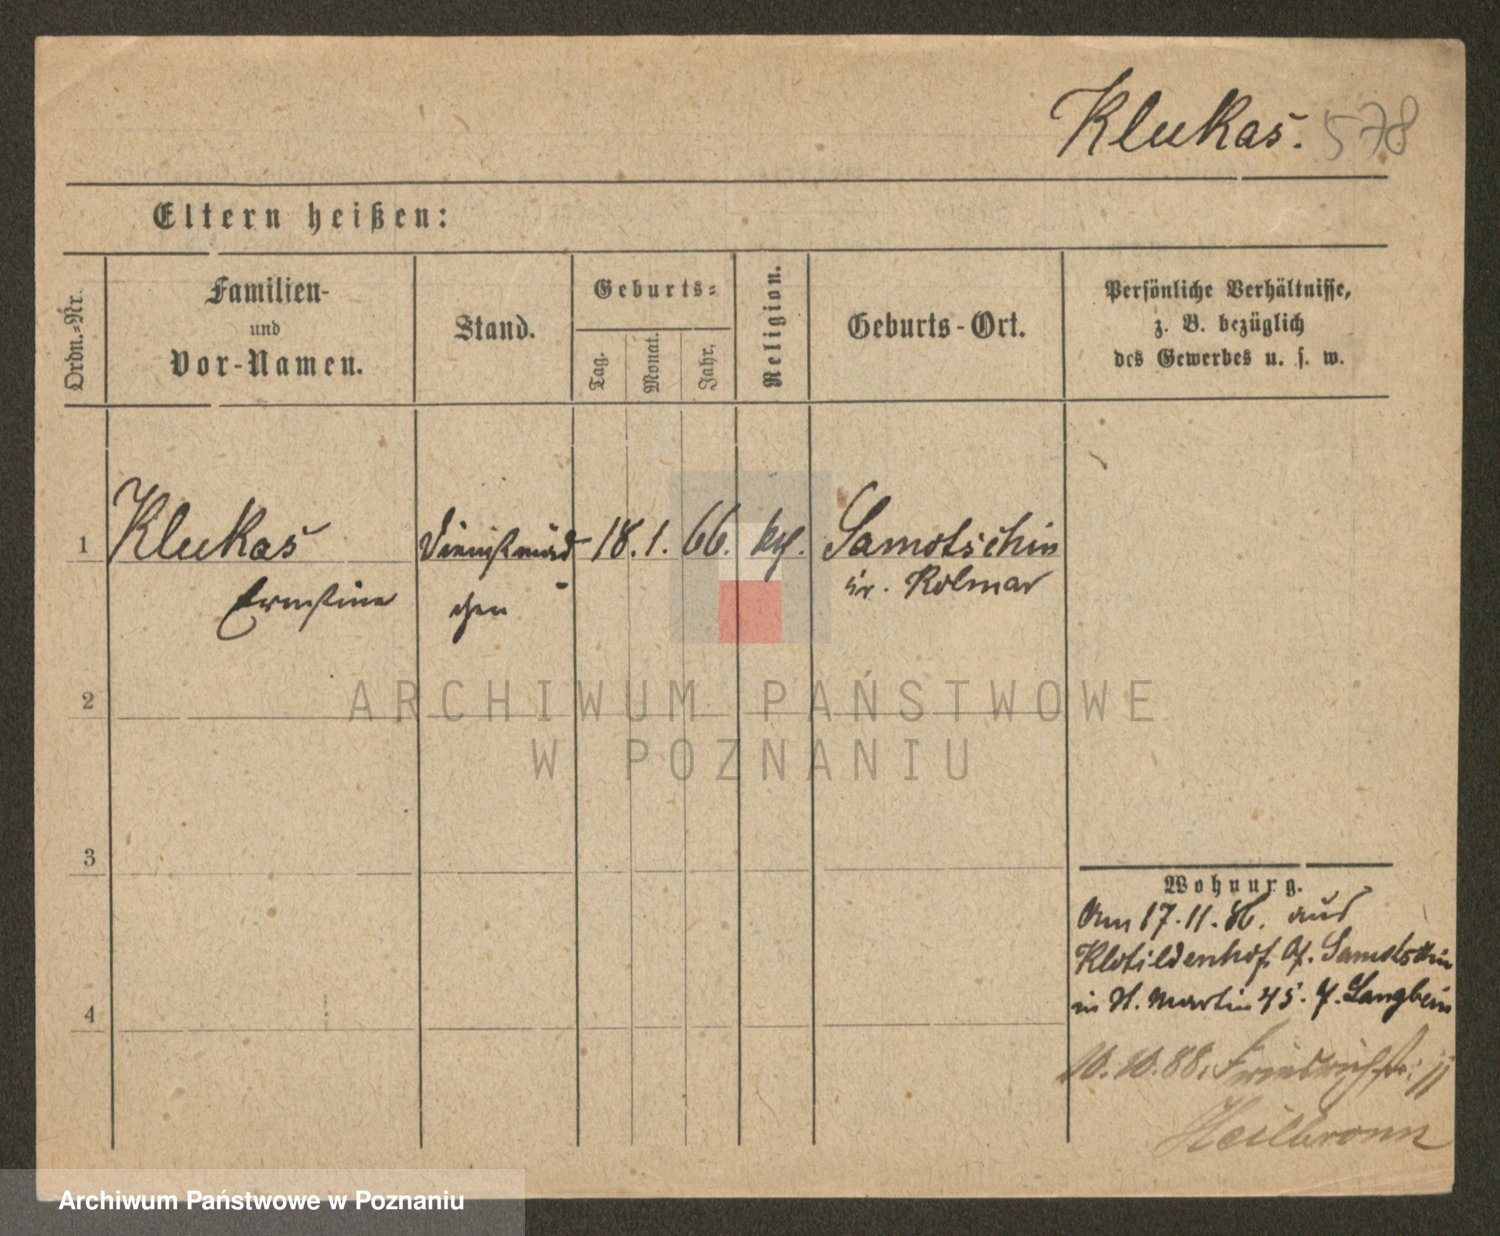 Klukas. 578
Eltern heißen:
Ordn.-Nr.
Familien-
und
Vor-Namen.
Stand.
Geburts-
Tag.
Monat.
Jahr.
Religion.
Geburts-Ort.
Persönliche Verhältnisse,
z. B. bezüglich
des Gewerbes u. s. w.
1 Klukas Dienstmäd- 18. 1. 66. Samotschin
Ernstine chen Kr. Kolmar
2
ARCHIWUM PAŃSTWOWE
W POZNANIU
3
Wohnung.
Am 17.11.86. aus
Klotildenhof Samotschin
in St. Martin 45. Langbein
10.10.88. Friedrichstr. 11
Heilbronn
4
Archiwum Państwowe w Poznaniu